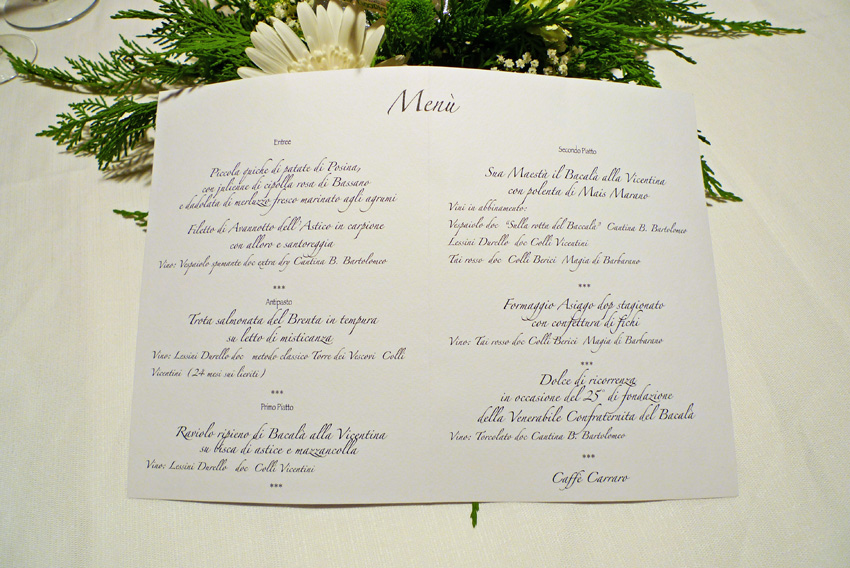 Menù
Entree
Piccola quiche di patate di Posina,
con julienne di cipolla rosa di Bassano
e dadolata di merluzzo fresco marinato agli agrumi
Filetto di Avannotto dell'Astico in carpione
con alloro e santoreggia
Vino: Vespaiolo spumante doc extra dry Cantina B. Bartolomeo
***
Antipasto
Trota salmonata del Brenta in tempura
su letto di misticanza
Vino: Lessini Durello doc metodo classico Torre dei Vescovi Colli
Vicentini (24 mesi sui lieviti)
***
Primo Piatto
Raviolo ripieno di Bacalà alla Vicentina
su bisca di astice e mazzancolla
Vino: Lessini Durello doc Colli Vicentini
***
Secondo Piatto
Sua Maestà il Bacalà alla Vicentina
con polenta di Mais Marano
Vini in abbinamento:
Vespaiolo doc "Sulla rotta del Baccalà" Cantina B. Bartolomeo
Lessini Durello doc Colli Vicentini
Tai rosso doc Colli Berici Magia di Barbarano
***
Formaggio Asiago dop stagionato
con confettura di fichi
Vino: Tai rosso doc Colli Berici Magia di Barbarano
***
Dolce di ricorrenza
in occasione del 25° di fondazione
della Venerabile Confraternita del Bacalà
Vino: Torcolato doc Cantina B. Bartolomeo
***
Caffè Carraro